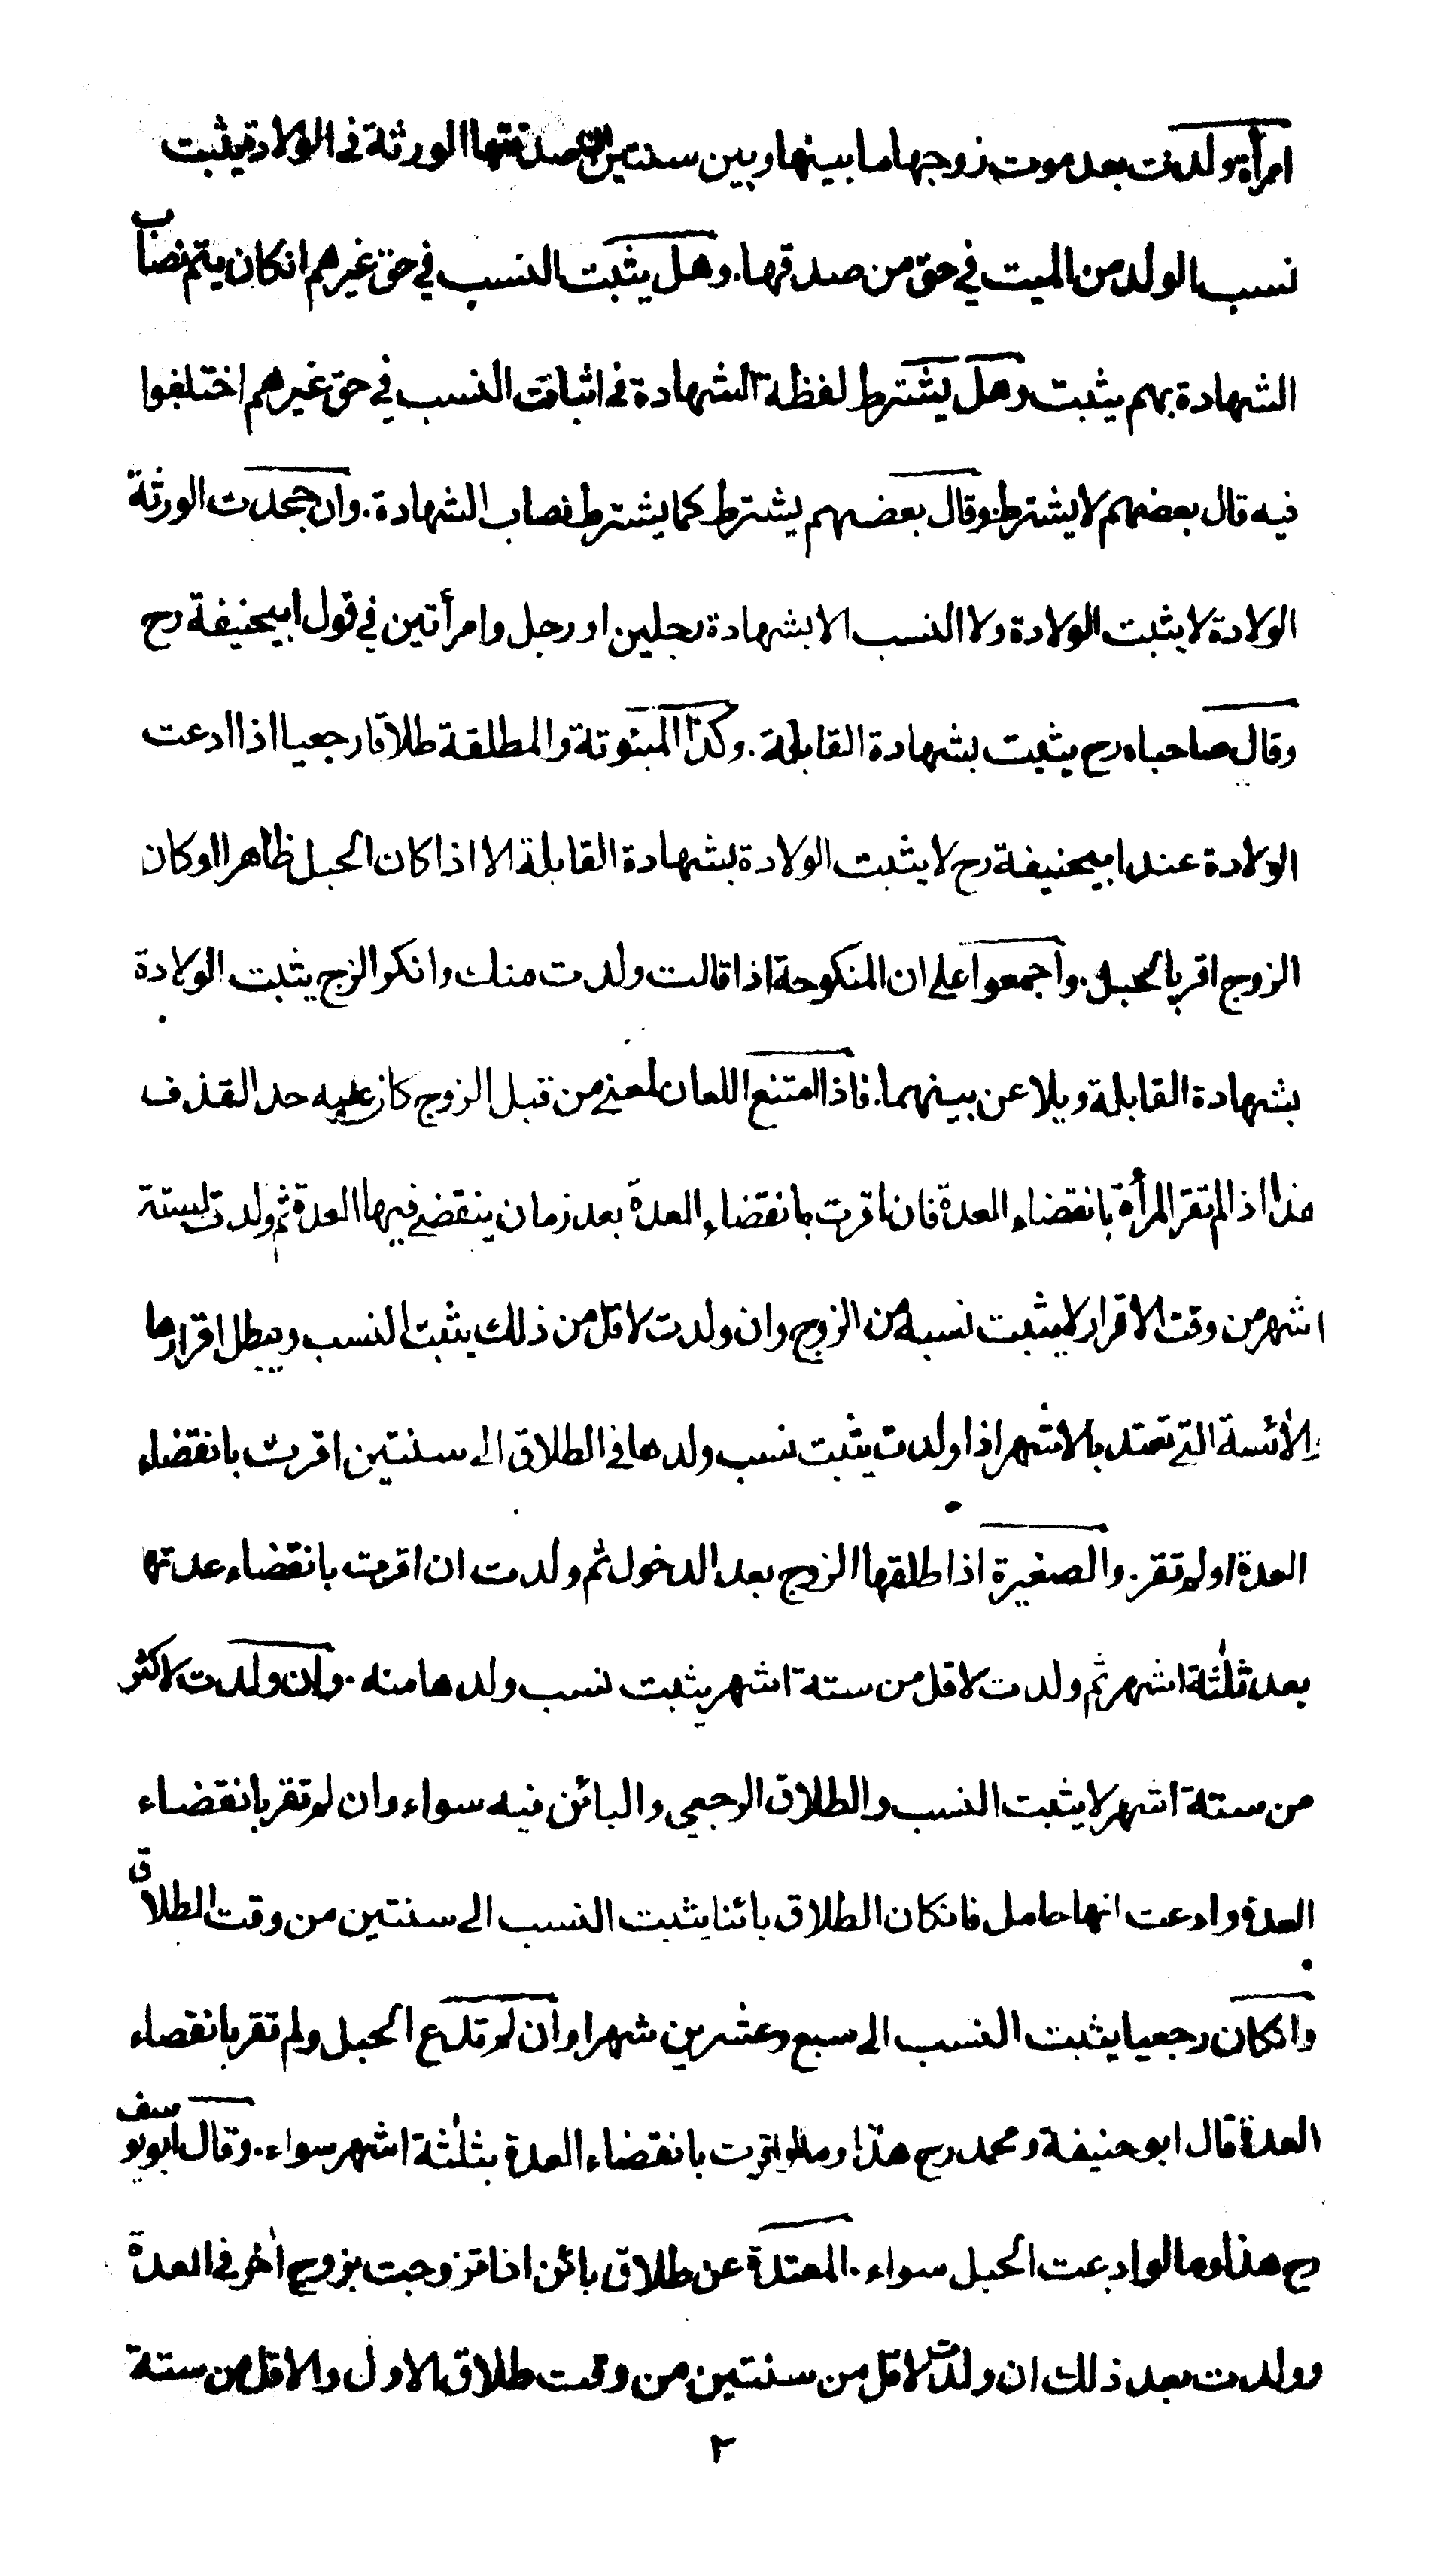 امرأة ولدت بعد موت زوجها ما بينها وبين سنتين ان صدقتها الورثة فى الولادة يثبت
نسب الولد من الميت في حق من صدقها. وهل يثبت النسب في حق غيرهم انكان يتم نصاب
الشهادة بهم يثبت وهل يشترط لفظة الشهادة فى اثبات النسب في حق غيرهم اختلفوا
فيه قال بعضهم لا يشترط وقال بعضهم يشترط كما يشترط نصاب الشهادة. وان جحدت الورثة
الولادة لا يثبت الولادة ولا النسب الا بشهادة رجلين او رجل وامرأتين في قول ابيحنيفة رح
وقال صاحباه رح يثبت بشهادة القابلة. وكذا المبتوتة والمطلقة طلاقا رجعيا اذا ادعت
الولادة عند ابيحنيفة رح لا يثبت الولادة بشهادة القابلة الا اذا كان الحبل ظاهرا او كان
الزوج اقر بالحبل. واجمعوا على ان المنكوحة اذا قالت ولدت منك وانكر الزوج يثبت الولادة
بشهادة القابلة ويلاعن بينهما. فاذا امتنع اللعان لمعنى من قبل الزوج كان عليه حد القذف
هذا اذا لم تقر المرأة بانقضاء العدة فان اقرت بانقضاء العدة بعد زمان ينقضى فيها العدة ثم ولدت لستة
اشهر من وقت الاقرار لا يثبت نسبه من الزوج وان ولدت لاقل من ذلك يثبت النسب ويبطل اقرارها
والآئسة التى تعتد بالاشهر اذا ولدت يثبت نسب ولدها فى الطلاق الى سنتين اقرت بانقضاء
العدة او لم تقر. والصغيرة اذا طلقها الزوج بعد الدخول ثم ولدت ان اقرت بانقضاء عدتها
بعد ثلثة اشهر ثم ولدت لاقل من ستة اشهر يثبت نسب ولدها منه. وان ولدت لاكثر
من ستة اشهر لا يثبت النسب والطلاق الرجعي والبائن فيه سواء وان لم تقر بانقضاء
العدة وادعت انها حامل فانكان الطلاق بائنا يثبت النسب الى سنتين من وقت الطلاق
وانكان رجعيا يثبت النسب الى سبع وعشرين شهرا وان لم تدع الحبل ولم تقر بانقضاء
العدة قال ابو حنيفة ومحمد رح هذا وما لو اقرت بانقضاء العدة بثلثة اشهر سواء. وقال ابويوسف
رح هذا وما لو ادعت الحبل سواء. المعتدة عن طلاق بائن اذا تزوجت بزوج آخر فى العدة
وولدت بعد ذلك ان ولدت لاقل من سنتين من وقت طلاق الاول ولاقل من ستة
٢